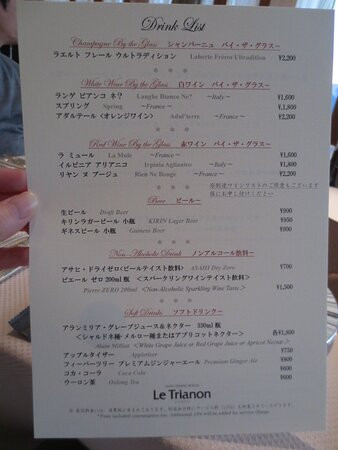 Drink List
Champagne By the Glass シャンパーニュ バイ・ザ・グラス~
ラエルト フレール ウルトラディション Laherte Frères Ultradition ¥2,200
White Wine By the Glass 白ワイン バイ・ザ・グラス~
ランゲ ビアンコ ネ? Langhe Bianco Ne? ~Italy~ ¥1,600
スプリング Spring ~France~ ¥1,800
アダルテール(オレンジワイン) Adul'terre ~France~ ¥2,200
Red Wine By the Glass 赤ワイン バイ・ザ・グラス~
ラ ミュール La Mule ~France~ ¥1,600
イルピニア アリアニコ Irpinia Aglianico ~Italy~ ¥1,800
リヤン ヌ ブージュ Rien Ne Bouge ~France~ ¥2,200
※別途ワインリストのご用意もございます
係にお申し付けください
Beer ビール~
生ビール Draft Beer ¥900
キリンラガービール 小瓶 KIRIN Lager Beer ¥850
ギネスビール 小瓶 Guinness Beer ¥950
Non-Alcoholic Drink ノンアルコール飲料~
アサヒ・ドライゼロ<ビールテイスト飲料> ASAHI Dry Zero ¥700
ピエール ゼロ 200ml 瓶 <スパークリングワインテイスト飲料>
Pierre ZERO 200ml <Non-Alcoholic Sparkling Wine Taste> ¥1,500
Soft Drinks ソフトドリンク~
アランミリア・グレープジュース&ネクター 330ml 瓶
<シャルドネ種・メルロー種またはアプリコットネクター> 各¥1,800
Alain Milliat <White Grape Juice or Red Grape Juice or Apricot Nectar>
アップルタイザー Appletiser ¥750
フィーバーツリー プレミアムジンジャーエール Premium Ginger Ale ¥800
コカ・コーラ Coca Cola ¥600
ウーロン茶 Oolong Tea ¥600
Le Trianon